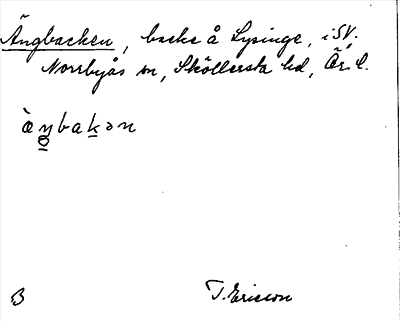 Ängbacken, backe å Lysinge, i SV.
Norrbyås sn, Sköllersta hd, Är. l.
B T. Ericson